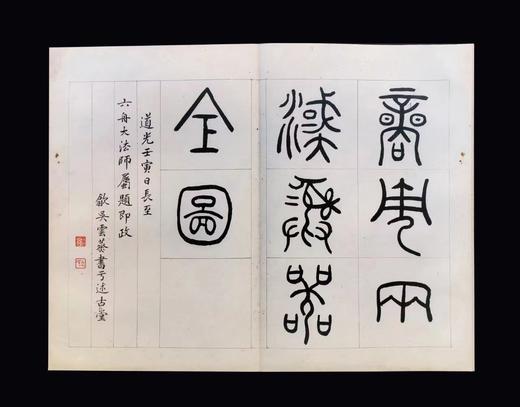 商周兩
漢彝器
全圖
道光壬寅日長至
六舟大法師屬題即政
歙吳雲蒸書于述古堂